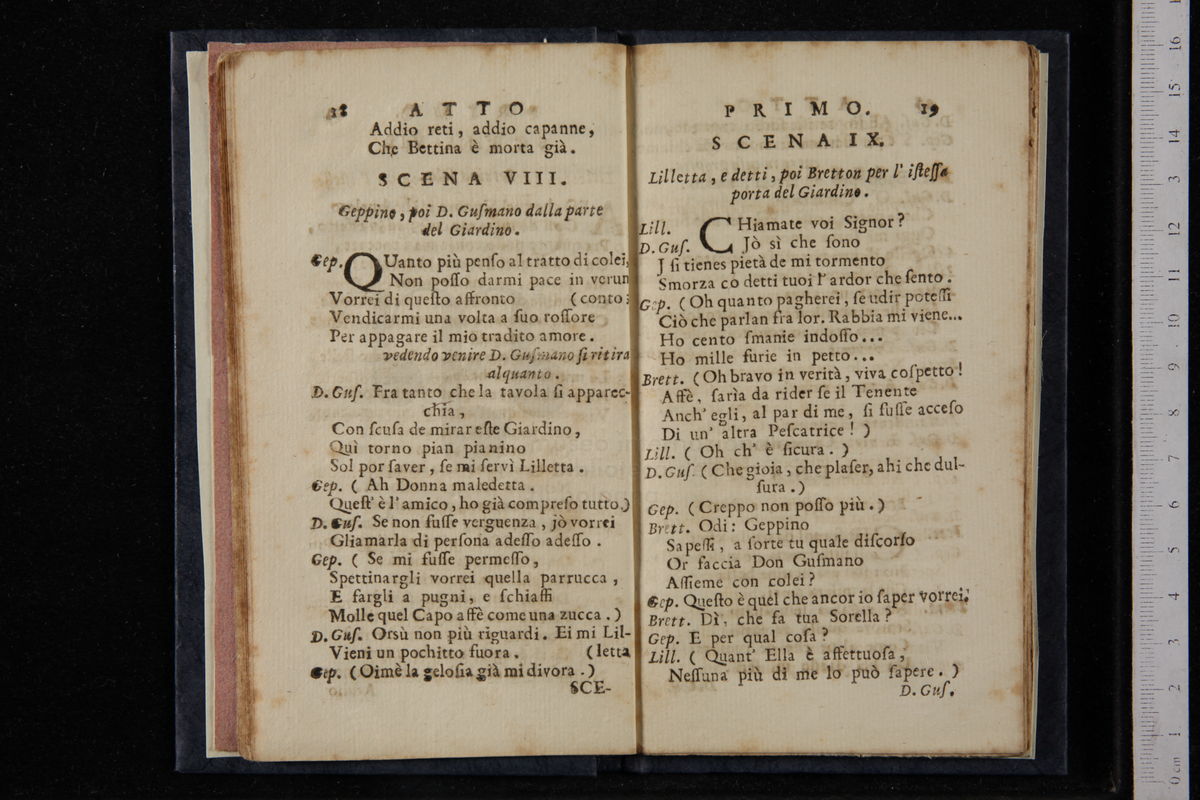 18 ATTO
Addio reti, addio capanne,
Che Bettina è morta già.
SCENA VIII.
Geppino, poi D. Guſmano dalla parte
del Giardino.
Gep. QUanto più penſo al tratto di colei,
Non poſſo darmi pace in verun
Vorrei di queſto affronto (conto;
Vendicarmi una volta a ſuo roſſore
Per appagare il mio tradito amore.
vedendo venire D. Guſmano ſi ritira
alquanto.
D. Guſ. Fra tanto che la tavola ſi apparec-
chia,
Con ſcuſa de mirar eſte Giardino,
Quì torno pian pianino
Sol por ſaver, ſe mi ſervì Lilletta.
Gep. (Ah Donna maledetta.
Queſt' è l'amico, ho già compreſo tutto.)
D. Guſ. Se non fuſſe verguenza, jò vorrei
Gliamarla di perſona adeſſo adeſſo.
Gep. (Se mi fuſſe permeſſo,
Spettinargli vorrei quella parrucca,
E fargli a pugni, e ſchiaffi
Molle quel Capo affè come una zucca.)
D. Guſ. Orsù non più riguardi. Ei mi Lil-
Vieni un pochitto fuora. (letta
Gep. (Oimè la geloſia già mi divora.)
SCE-
PRIMO. 19
SCENA IX.
Lilletta, e detti, poi Bretton per l' iſteſſa
porta del Giardino.
Lill. CHiamate voi Signor?
D. Guſ. Jò sì che ſono
J ſi tienes pietà de mi tormento
Smorza co detti tuoi l'ardor che ſento.
Gep. (Oh quanto pagherei, ſe udir poteſſi
Ciò che parlan fra lor. Rabbia mi viene...
Ho cento ſmanie indoſſo...
Ho mille furie in petto...
Brett. (Oh bravo in verità, viva coſpetto!
Affè, ſarìa da rider ſe il Tenente
Anch' egli, al par di me, ſi fuſſe acceſo
Di un' altra Peſcatrice!)
Lill. (Oh ch' è ſicura.)
D. Guſ. (Che gioia, che plaſer, ahi che dul-
ſura.)
Gep. (Creppo non poſſo più.)
Brett. Odi: Geppino
Sapeſſi, a ſorte tu quale diſcorſo
Or faccia Don Guſmano
Aſſieme con colei?
Gep. Queſto è quel che ancor io ſaper vorrei.
Brett. Dì, che fa tua Sorella?
Gep. E per qual coſa?
Lill. (Quant' Ella è affettuoſa,
Neſſuna più di me lo può ſapere.)
D. Guſ.